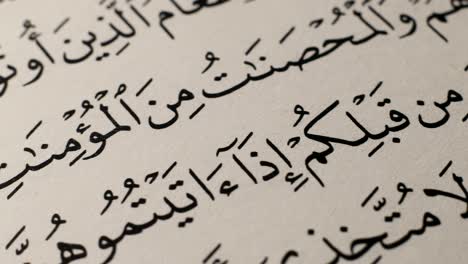 ٱلَّذِينَ أُوتُو
هُمْ وَٱلْمُحْصَنَٰتُ مِنَ ٱلْمُؤْمِنَٰتِ
مِن قَبْلِكُمْ إِذَآ ءَاتَيْتُمُوهُنَّ
لَا مُتَّخِذِىٓ